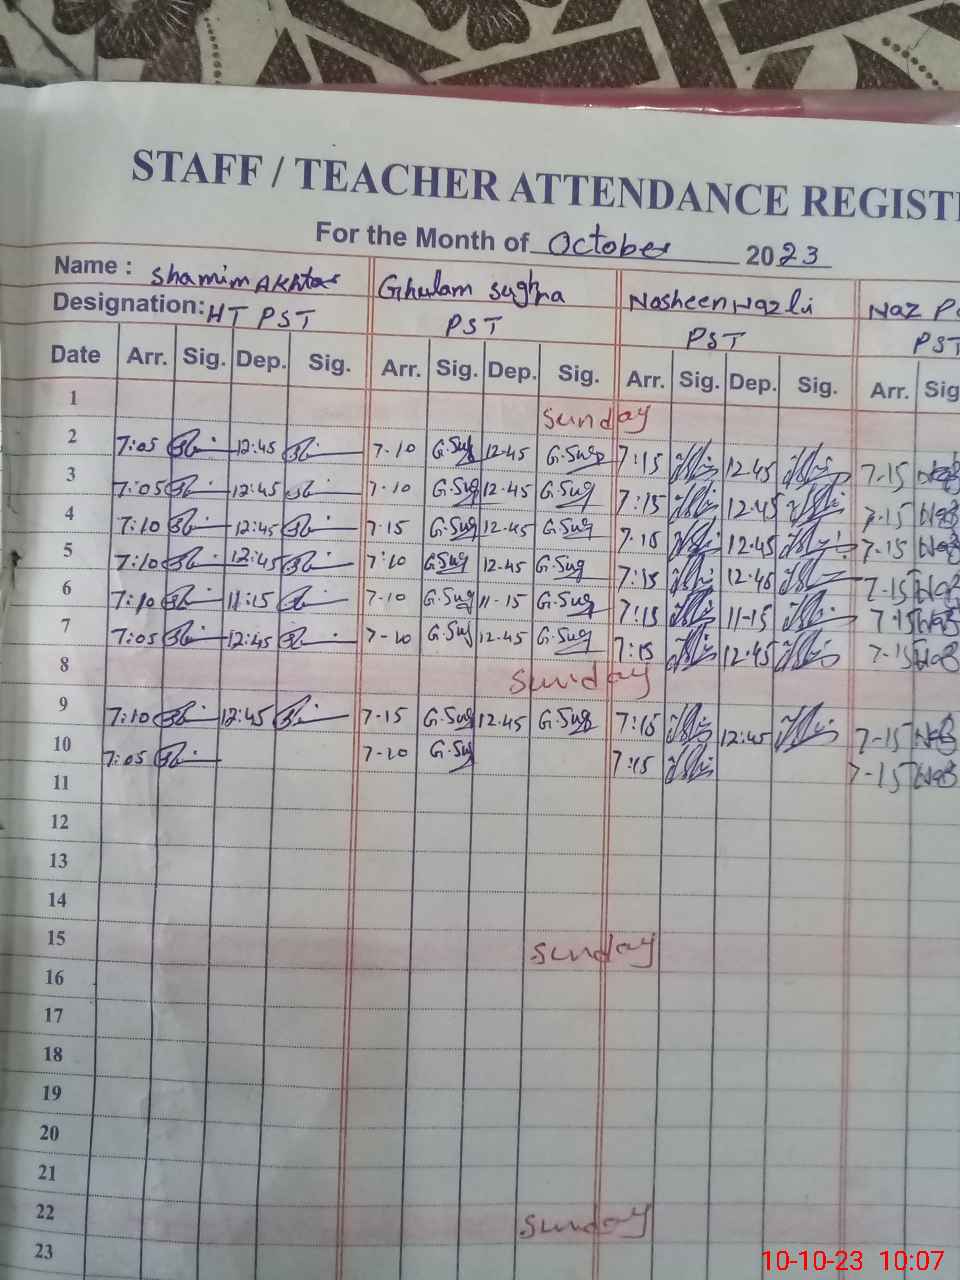 STAFF / TEACHER ATTENDANCE REGIST
For the Month of October 2023
Name : Shamim Akhtar Ghulam Sughra Nosheen Nazli Naz
Designation: HT PST PST PST PST
Date Arr. Sig. Dep. Sig. Arr. Sig. Dep. Sig. Arr. Sig. Dep. Sig. Arr. Sig
1 Sunday
2 7:05 12:45 7-10 G.Sug 12-45 G.Sug 7:15 12.45 7-15 Naz
3 7:05 12:45 7-10 G.Sug 12-45 G.Sug 7:15 12.45 7-15 Naz
4 7:10 12:45 7-15 G.Sug 12-45 G.Sug 7:15 12.45 7-15 Naz
5 7:10 12:45 7:10 G.Sug 12-45 G.Sug 7:15 12.45 7-15 Naz
6 7:10 11:15 7-10 G.Sug 11-15 G.Sug 7:15 11-15 7-15 Naz
7 7:05 12:45 7-10 G.Sug 12-45 G.Sug 7:15 12.45 7-15 Naz
8 Sunday
9 7:10 12:45 7-15 G.Sug 12-45 G.Sug 7:15 12:45 7-15 Naz
10 7:05 7-10 G.Sug 7:15 7-15 Naz
11
12
13
14
15 Sunday
16
17
18
19
20
21
22 Sunday
23
10-10-23 10:07